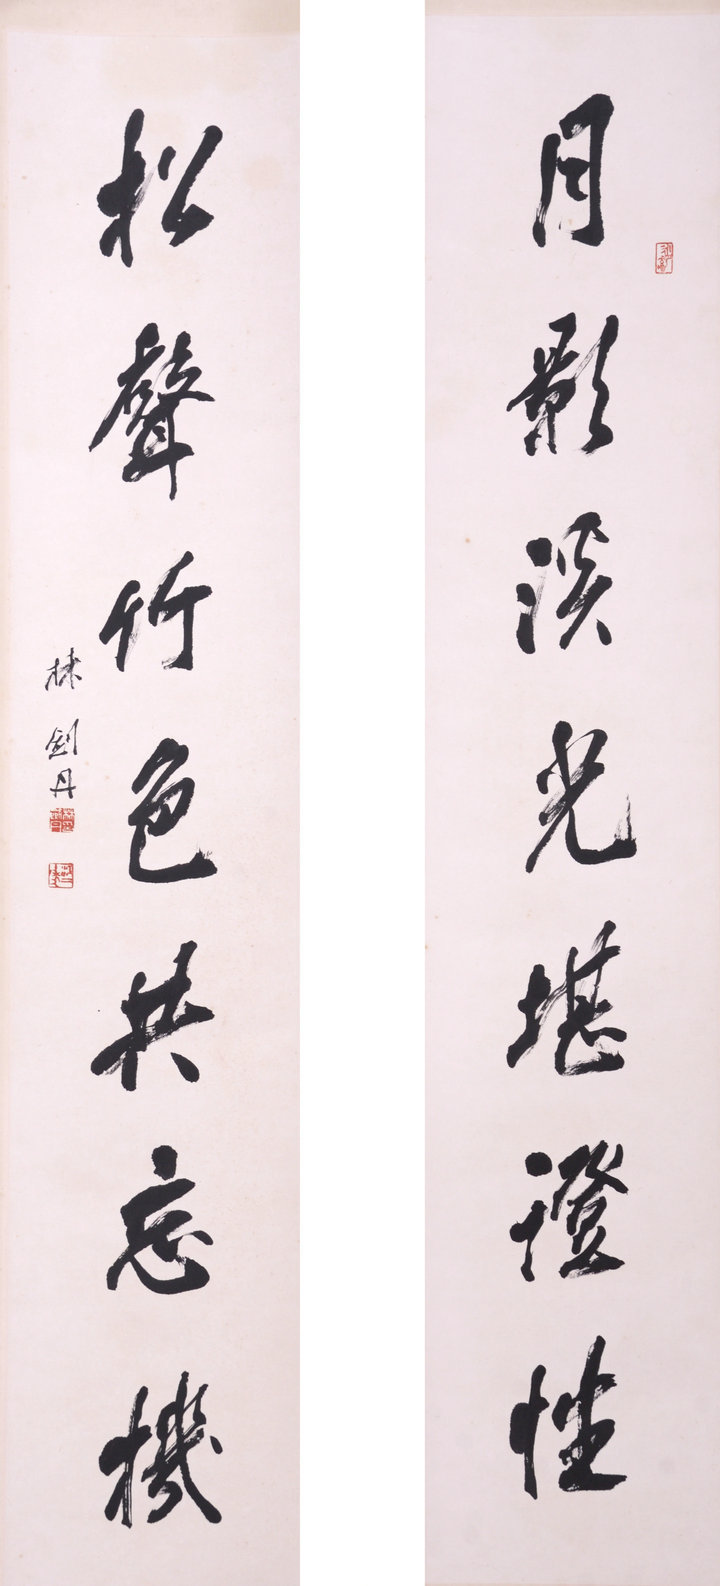 月影溪光堪證性
松聲竹色共忘機
林劍丹